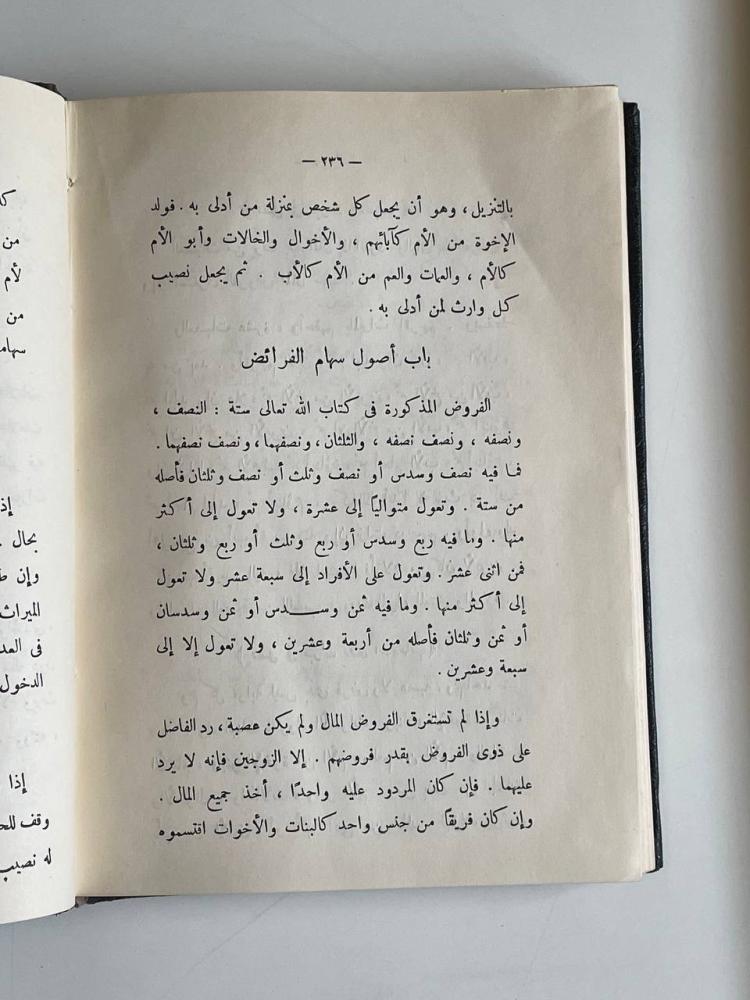 — ٢٣٦ —
بالتنزيل، وهو أن يجعل كل شخص بمنزلة من أدلى به. فولد
الإخوة من الأم كآبائهم، والأخوال والخالات وأبو الأم
كالأم، والعمات والعم من الأم كالأب. ثم يجعل نصيب
كل وارث لمن أدلى به.
باب أصول سهام الفرائض
الفروض المذكورة فى كتاب الله تعالى ستة: النصف،
ونصفه، ونصف نصفه، والثلثان، ونصفهما، ونصف نصفهما.
فما فيه نصف وسدس أو نصف وثلث أو نصف وثلثان فأصله
من ستة. وتعول متوالياً إلى عشرة، ولا تعول إلى أكثر
منها. وما فيه ربع وسدس أو ربع وثلث أو ربع وثلثان،
فمن اثنى عشر. وتعول على الأفراد إلى سبعة عشر ولا تعول
إلى أكثر منها. وما فيه ثمن وســدس أو ثمن وسدسان
أو ثمن وثلثان فأصله من أربعة وعشرين، ولا تعول إلا إلى
سبعة وعشرين.
وإذا لم تستغرق الفروض المال ولم يكن عصبة، رد الفاضل
على ذوى الفروض بقدر فروضهم. إلا الزوجين فإنه لا يرد
عليهما. فإن كان المردود عليه واحدًا، أخذ جميع المال.
وإن كان فريقًا من جنس واحد كالبنات والأخوات اقتسموه
من
لأم
من
إذ
بحال.
وإن
الميراث
فى
الدخول
إذا
له نصيب